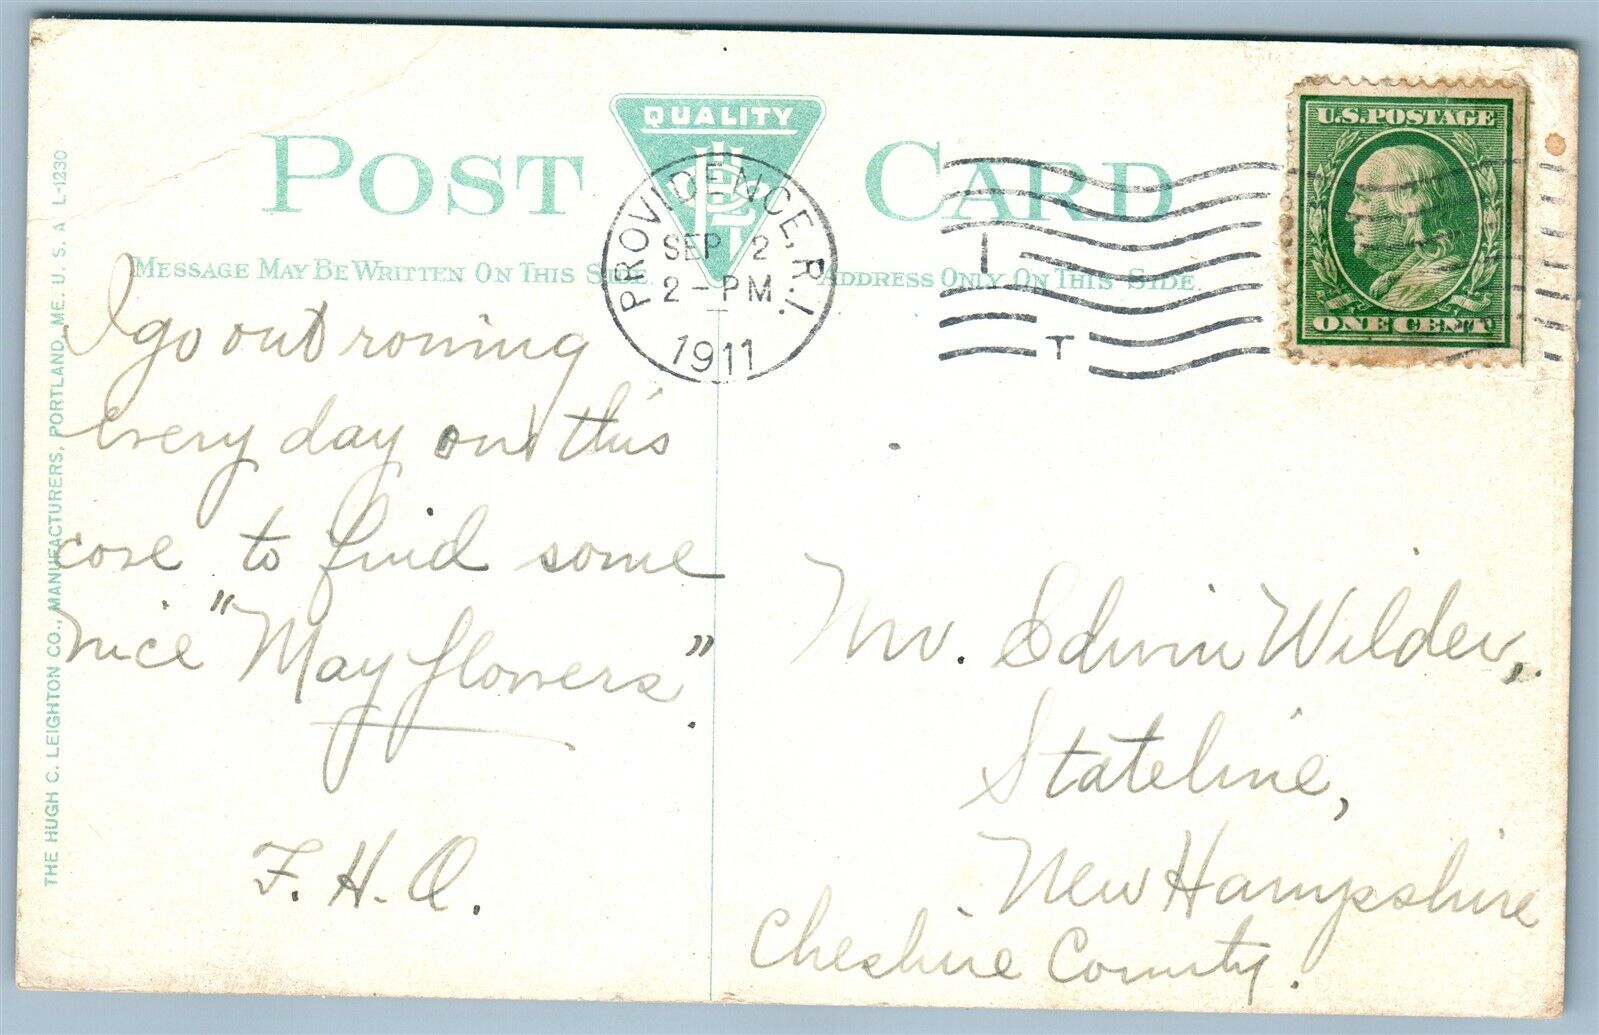 POST CARD
QUALITY
MESSAGE MAY BE WRITTEN ON THIS SIDE.
ADDRESS ONLY ON THIS SIDE.
PROVIDENCE, R.I.
SEP 2
2 - PM
1911
I
T
U.S. POSTAGE
ONE CENT
THE HUGH C. LEIGHTON CO., MANUFACTURERS, PORTLAND, ME. U. S. A L-1230
I go out roning
every day on this
core to find some
nice "May flowers".
F. H. Q.
Mr. Edwin Wilder,
Stateline,
New Hampshire
Cheshire County.